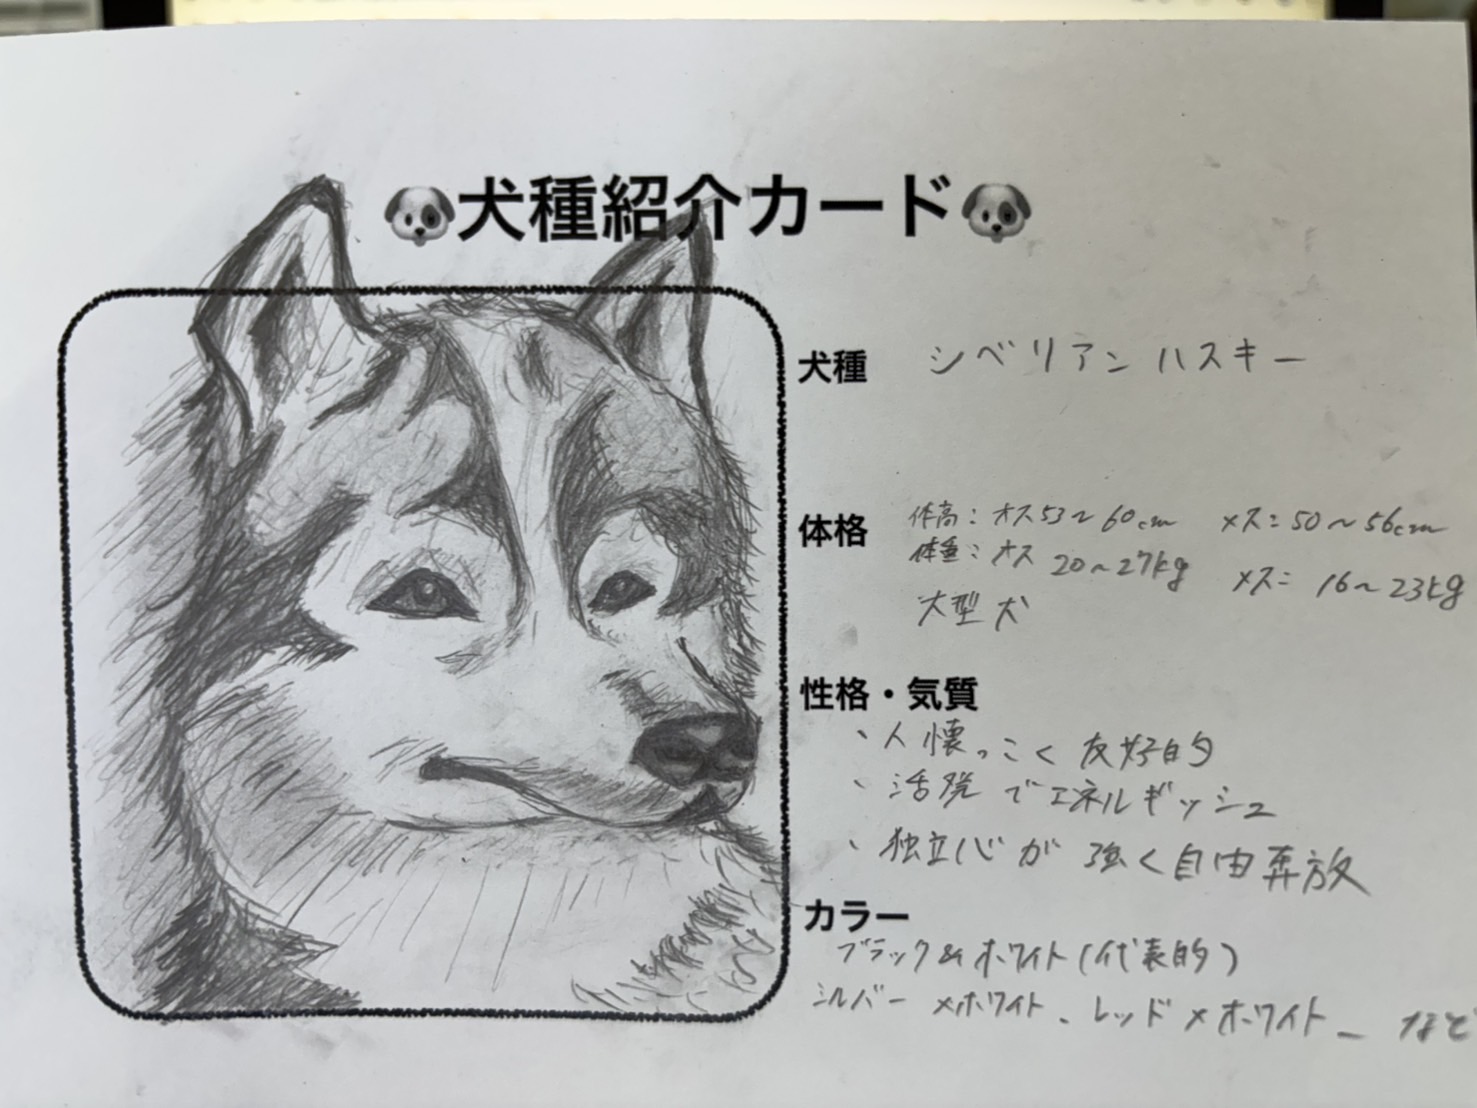 🐶犬種紹介カード🐶
犬種 シベリアンハスキー
体格 体高:オス53~60cm メス:50~56cm
体重:オス 20~27kg メス: 16~23kg
大型犬
性格・気質
・人懐っこく友好的
・活発でエネルギッシュ
・独立心が強く自由奔放
カラー
ブラック&ホワイト(代表的)
シルバー×ホワイト、レッド×ホワイト_など